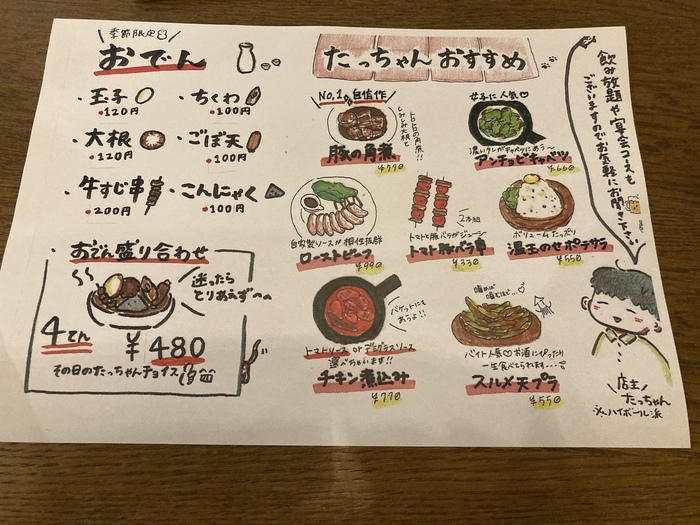 季節限定
おでん
・玉子
120円
・ちくわ
100円
・大根
120円
・ごぼ天
100円
・牛すじ串
200円
・こんにゃく
100円
・おでん盛り合わせ
迷ったら
とりあえず
4てん
¥480
その日のたっちゃんチョイス
たっちゃんおすすめ
No.1 自信作
トロトロの角煮!!
しみしみ大根と
豚の角煮
¥770
女子に人気♡
濃いタレがキャベツにあう〜
アンチョビキャベツ
¥660
自家製ソースが相性抜群
ローストビーフ
¥990
2本組
トマトと豚バラがジューシー
トマト豚バラ串
¥330
ボリュームたっぷり
温玉のせポテサラ
¥550
バゲットにも
あうよ!!
トマトソース or デミグラスソース
選べちゃいます!!
チキン煮込み
¥770
噛めば
噛むほど...♡
バイト人気♡お酒にぴったり
一生食べてられます...
スルメ天プラ
¥550
飲み放題や宴会コースも
ございますのでお気軽にお聞き下さい
店主
たっちゃん
※ハイボール派